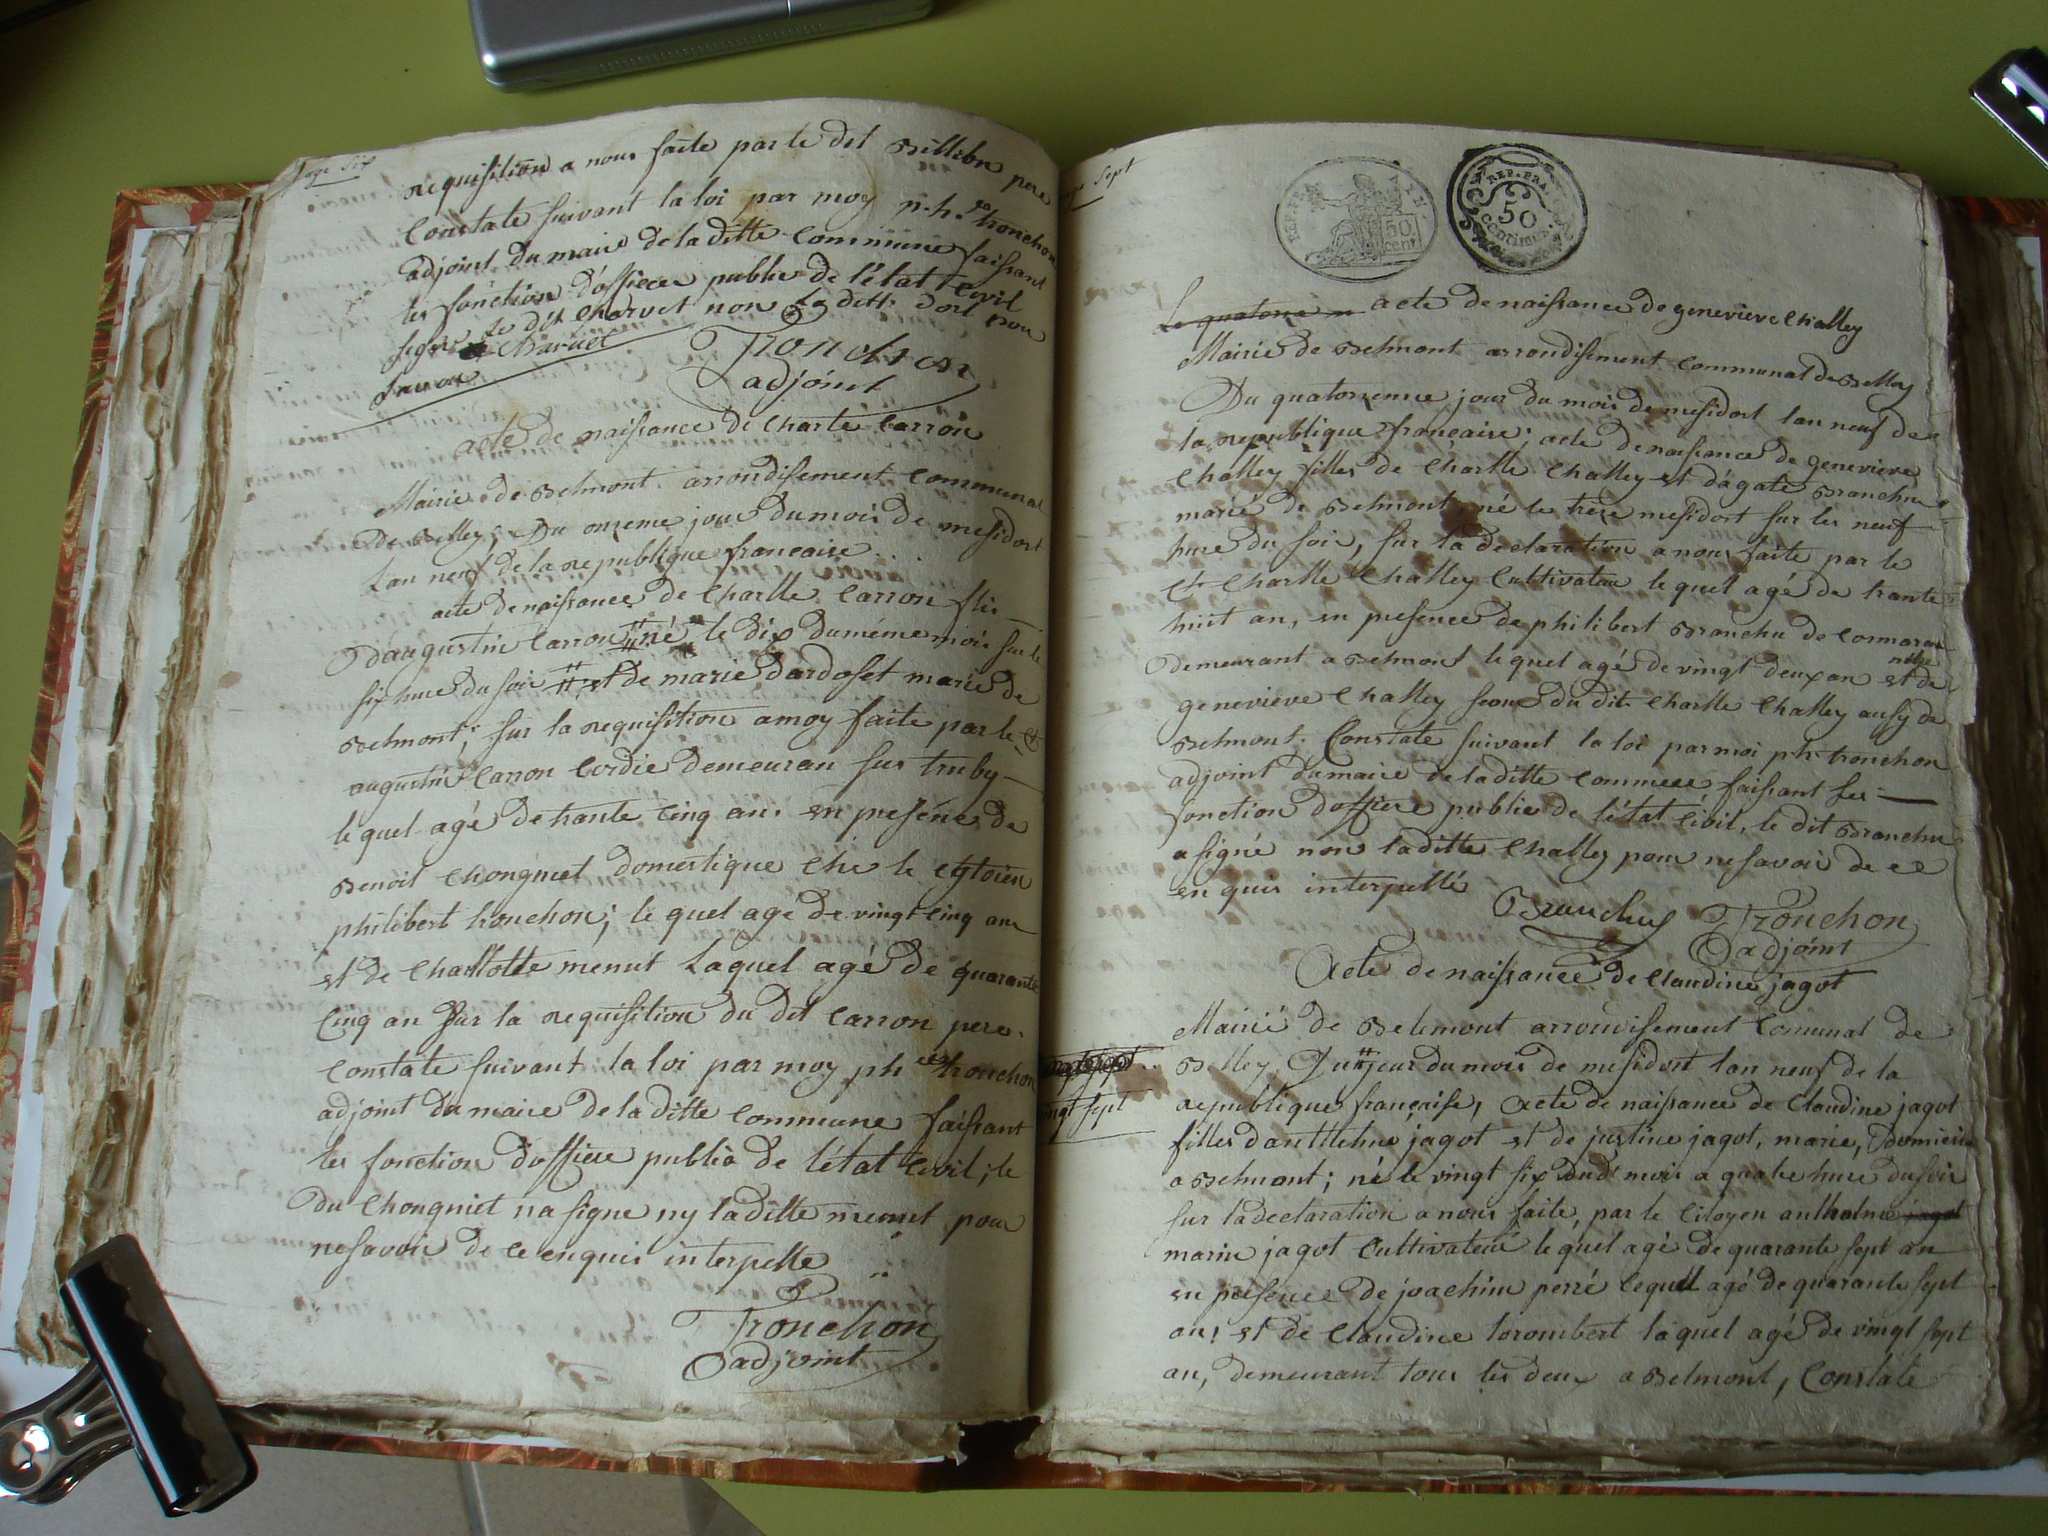 page six
requisition a nous faite par le dit Billibn pere
Constate suivant la loi par moy p. h. tronchon
adjoint du maire de la ditte commune faissant
les fonction d'officier public de l'état Civil
signe le dit Charvet non la ditte dort pour
Charvet
Tronchon
adjoint
acte de naissance de Charle Carron
Mairie de Belmont arrondisement Communal
de Belley; Du onzeme jour du mois de mesidort
Lan neuf de la republique francaise
acte de naissance de Charlle Carron fils
D'augustin Carron né le dix du même mois sur le
six hure du soir et de marie Dardoset marié de
Belmont; sur la requisition a moy faite par le
augustin Carron Cordie demeuran sur truby
le quel agé de trante cinq an. en presence de
Benoit Chongniet domestique che le Cytoien
philibert tronchon; le quel agé de vingt cinq an
et de Charllotte menut Laquel agé de quarante
Cinq an Sur la requisition du dit Carron pere
Constate suivant la loi par moy ph tronchon
adjoint du maire de la ditte commune faissant
les fonction d'officier public de l'état Civil; le
Du Chongniet na signe ny la ditte menut pour
ne savoir de ce enquis interpelle
Tronchon
adjoint
page Sept
REP. FRA.
50 cent.
REP. FRA.
50
Centimes
Le quatorze acte de naissance de genevieve Challey
Mairie de Belmont arrondisement communal de Belley
Du quatorzeme jour du mois de mesidort lan neuf de
la republique française; acte de naissance de genevieve
Challey filles de Charlle Challey et d'agate Branchu
marié de Belmont, né le treze mesidort sur les neuf
hure du soir, sur la declaration a nous faite par le
Ct Charlle Challey Cultivateur le quel agé de trante
huit an, en presence de philibert Branchu de Lonmaran
demeurant a Belmont le quel agé de vingt deux an et de
genevieve Challey seour du dit Charlle Challey ausy de
Belmont. Constate suivant la loi par moi ph tronchon
adjoint du maire de la ditte commune faissant les
fonction d'officiere public de l'état Civil, le dit Branchu
a signé non la ditte Challey pour ne savoir de ce
enquis interpellé
Branchu Tronchon
adjoint
Acte de naissance de Claudine jagot
Mairie de Belmont arrondisement Comunal de
Belley. Du jour du mois de mesidort lan neuf de la
vingt sept
republique française, Acte de naissance de Claudine jagot
filles d'antthelme jagot et de justine jagot, marie, Domicie
a Belmont; né le vingt six dud mois a quatre hure du soir
sur la declaration a nous faite, par le Citoyen anthelme jagot
marin jagot Cultivateur le quel agé de quarante sept an
en presence de joachim perré lequel agé de quarante sept
an; et de Claudine torombert laquel agé de vingt sept
an, demeurant tous les deux a Belmont, Constate